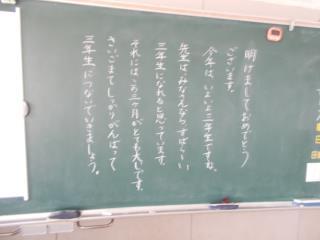 明けましておめでとう
ございます。
今年は、いよいよ三年生ですね。
先生は、みなさんならすばらしい
三年生になれると思っています。
それには、この三ヶ月がとても大じです。
さいごまでしっかりがんばって
三年生につないでいきましょう。